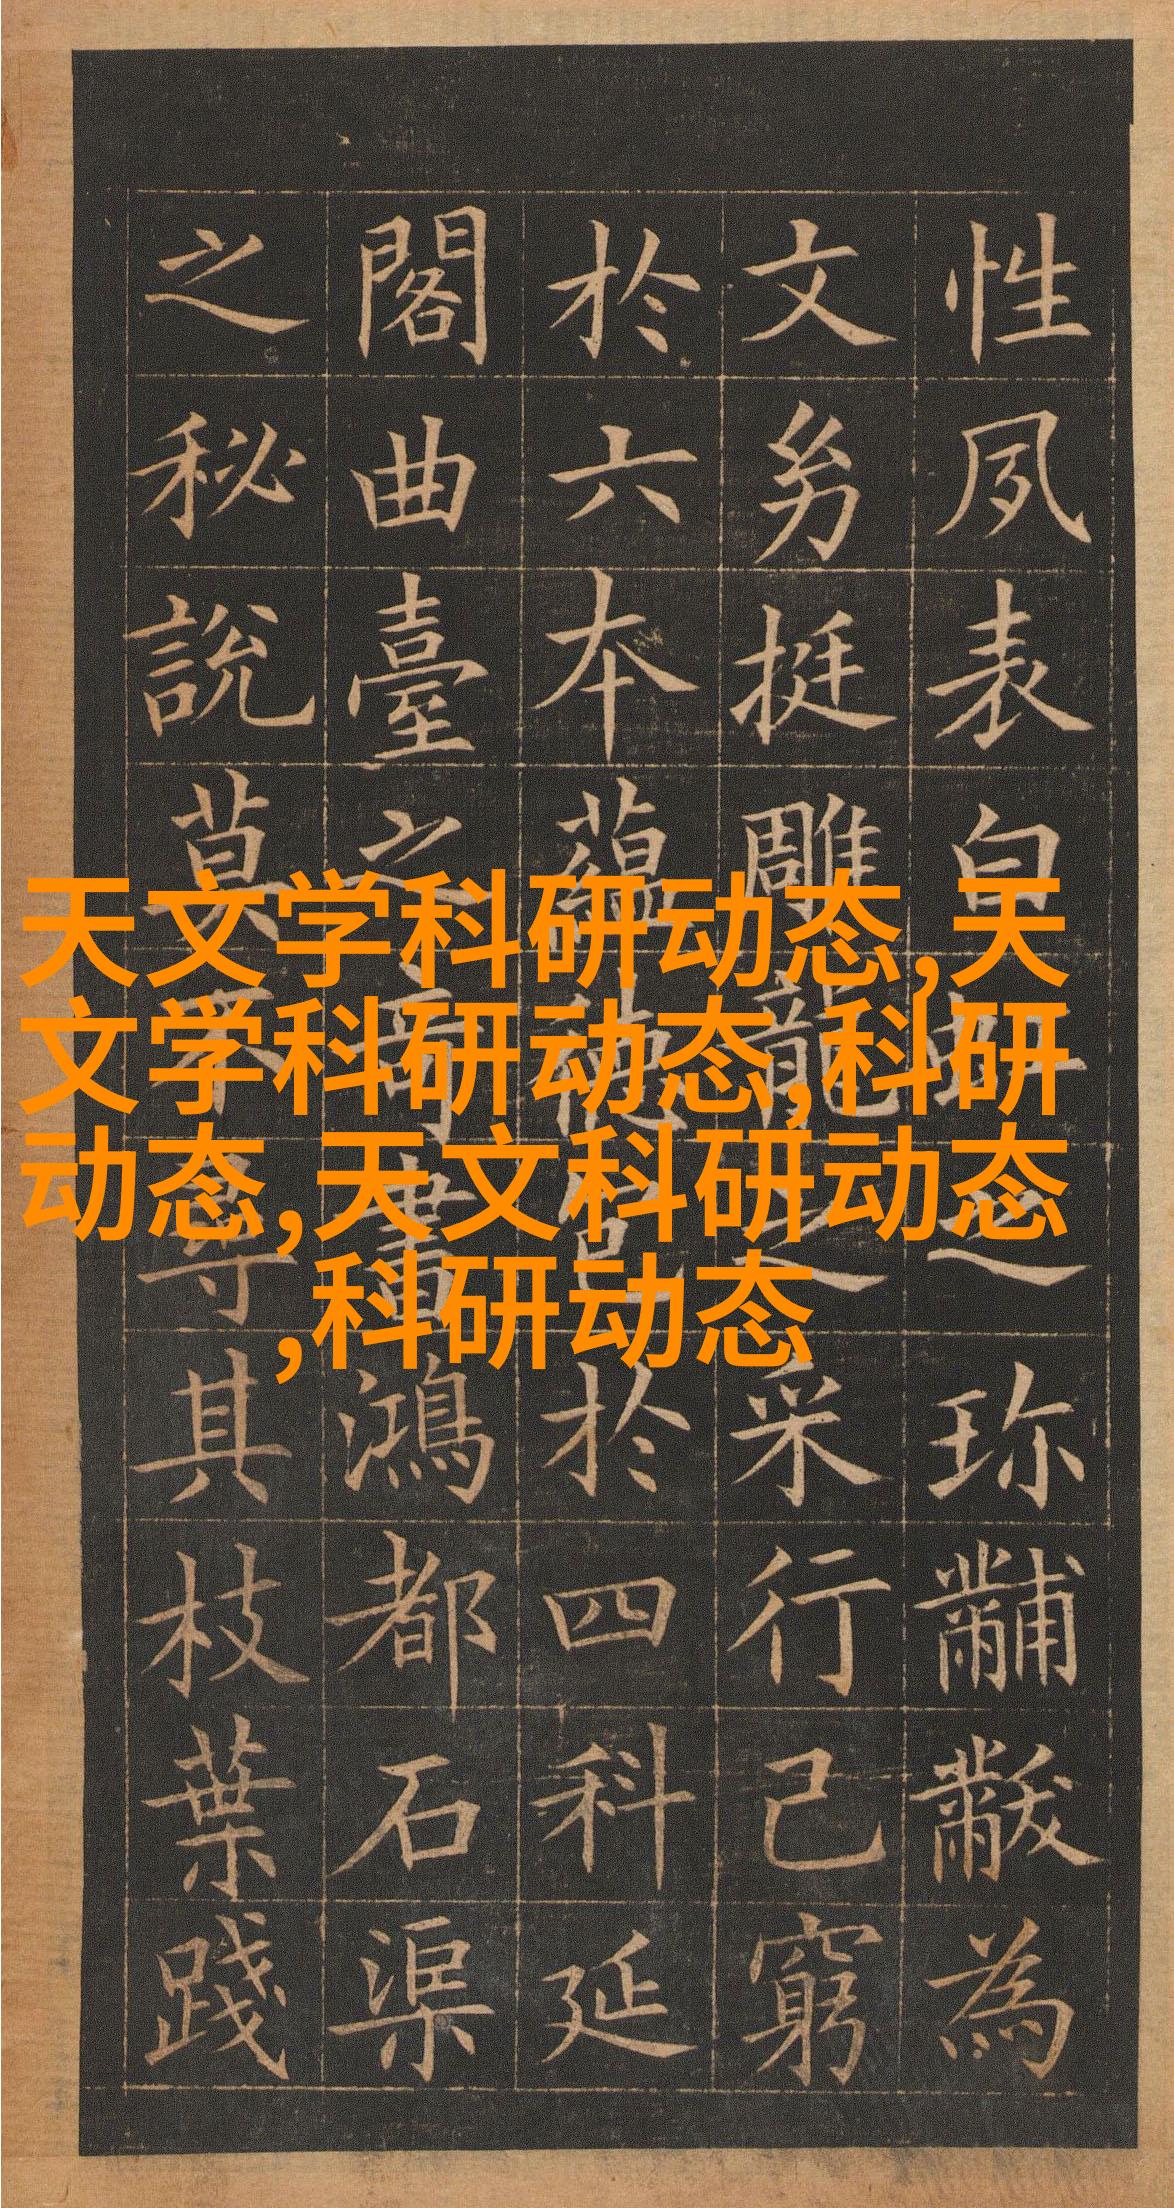 性夙表白虹之珍黼黻為
文幼挺雕龍之采行己窮
於六本蘊德包於四科延
閣曲臺之奇書鴻都石渠
之秘說莫不尋其枝葉踐
天文学科研动态,天
文学科研动态,科研
动态,天文科研动态
,科研动态